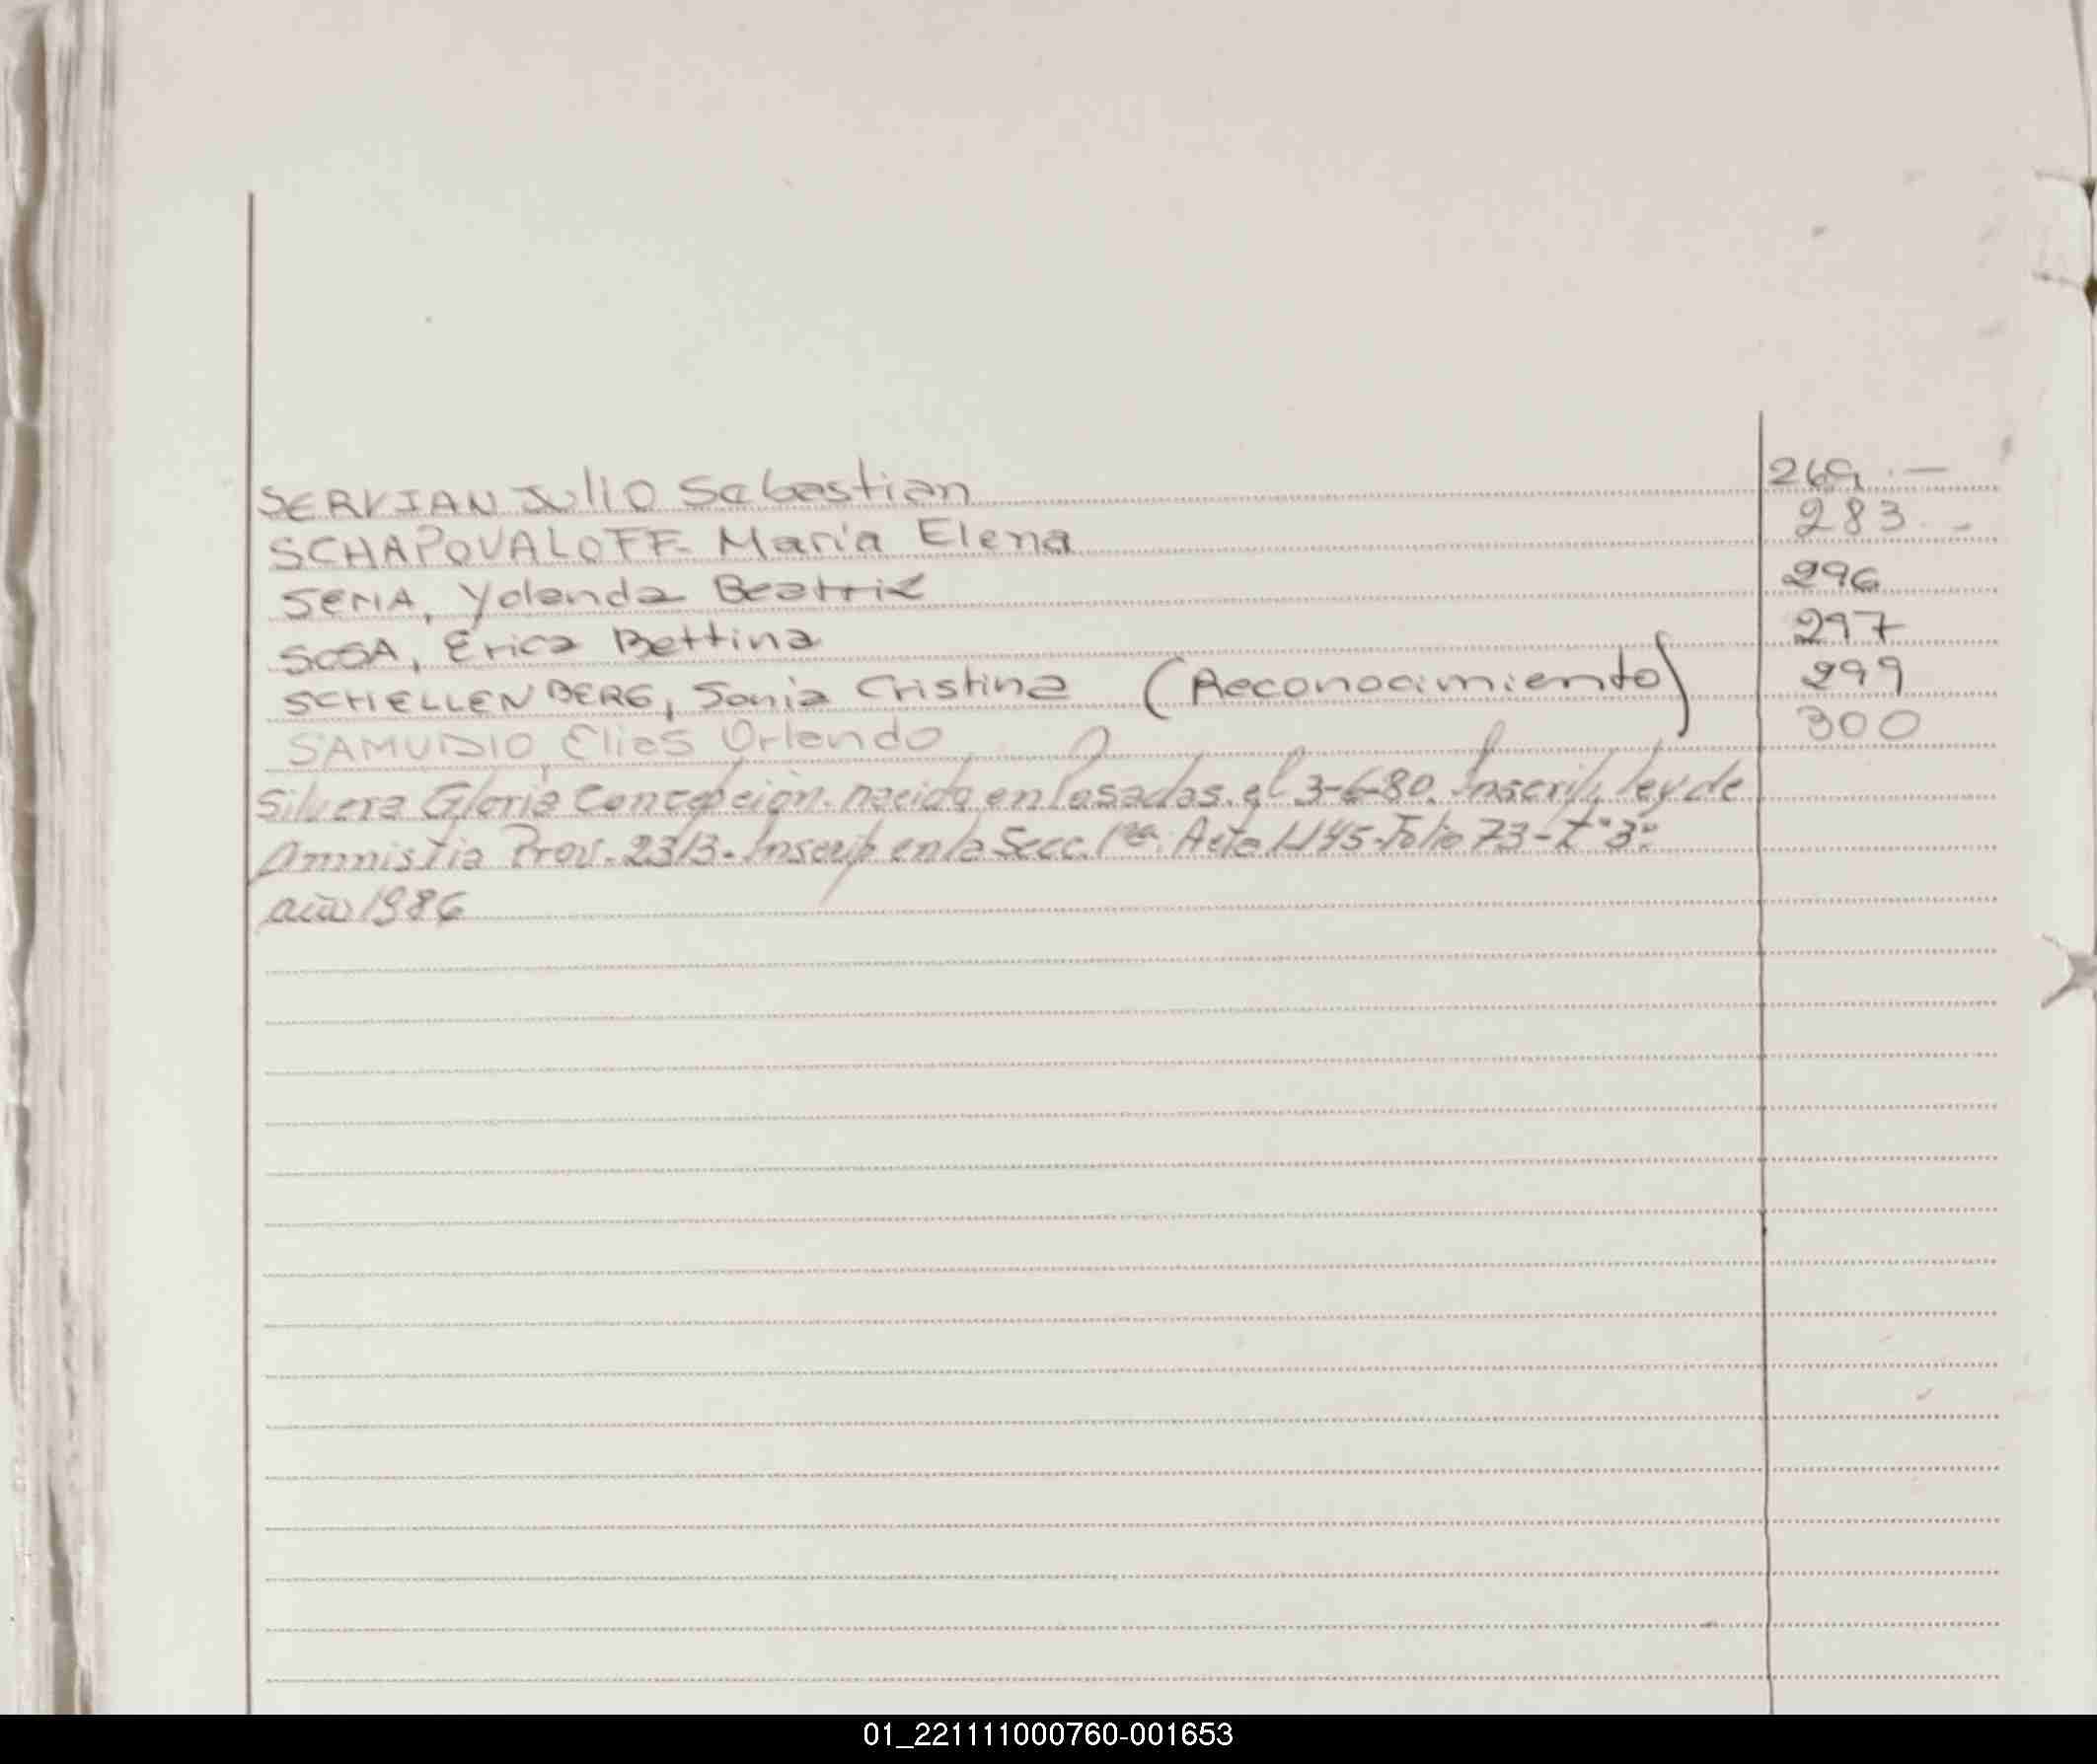 SERVIAN Julio Sebastian 269.—
SCHAPOVALOFF- Maria Elena 283.-
SENA, Yolanda Beatriz 296
SOSA, Erica Bettina 297
SCHELLENBERG, Sonia Cristina (Reconocimiento) 299
SAMUDIO, Elias Orlando 300
Silvera Gloria Concepción. nacida en Posadas. el 3-6-80. Inscrip. ley de
Amnistia Prov. 2313. Inscrip en la Secc. 1ra. Acta 1145-Folio 73-t°3°.
año 1986
01_221111000760-001653